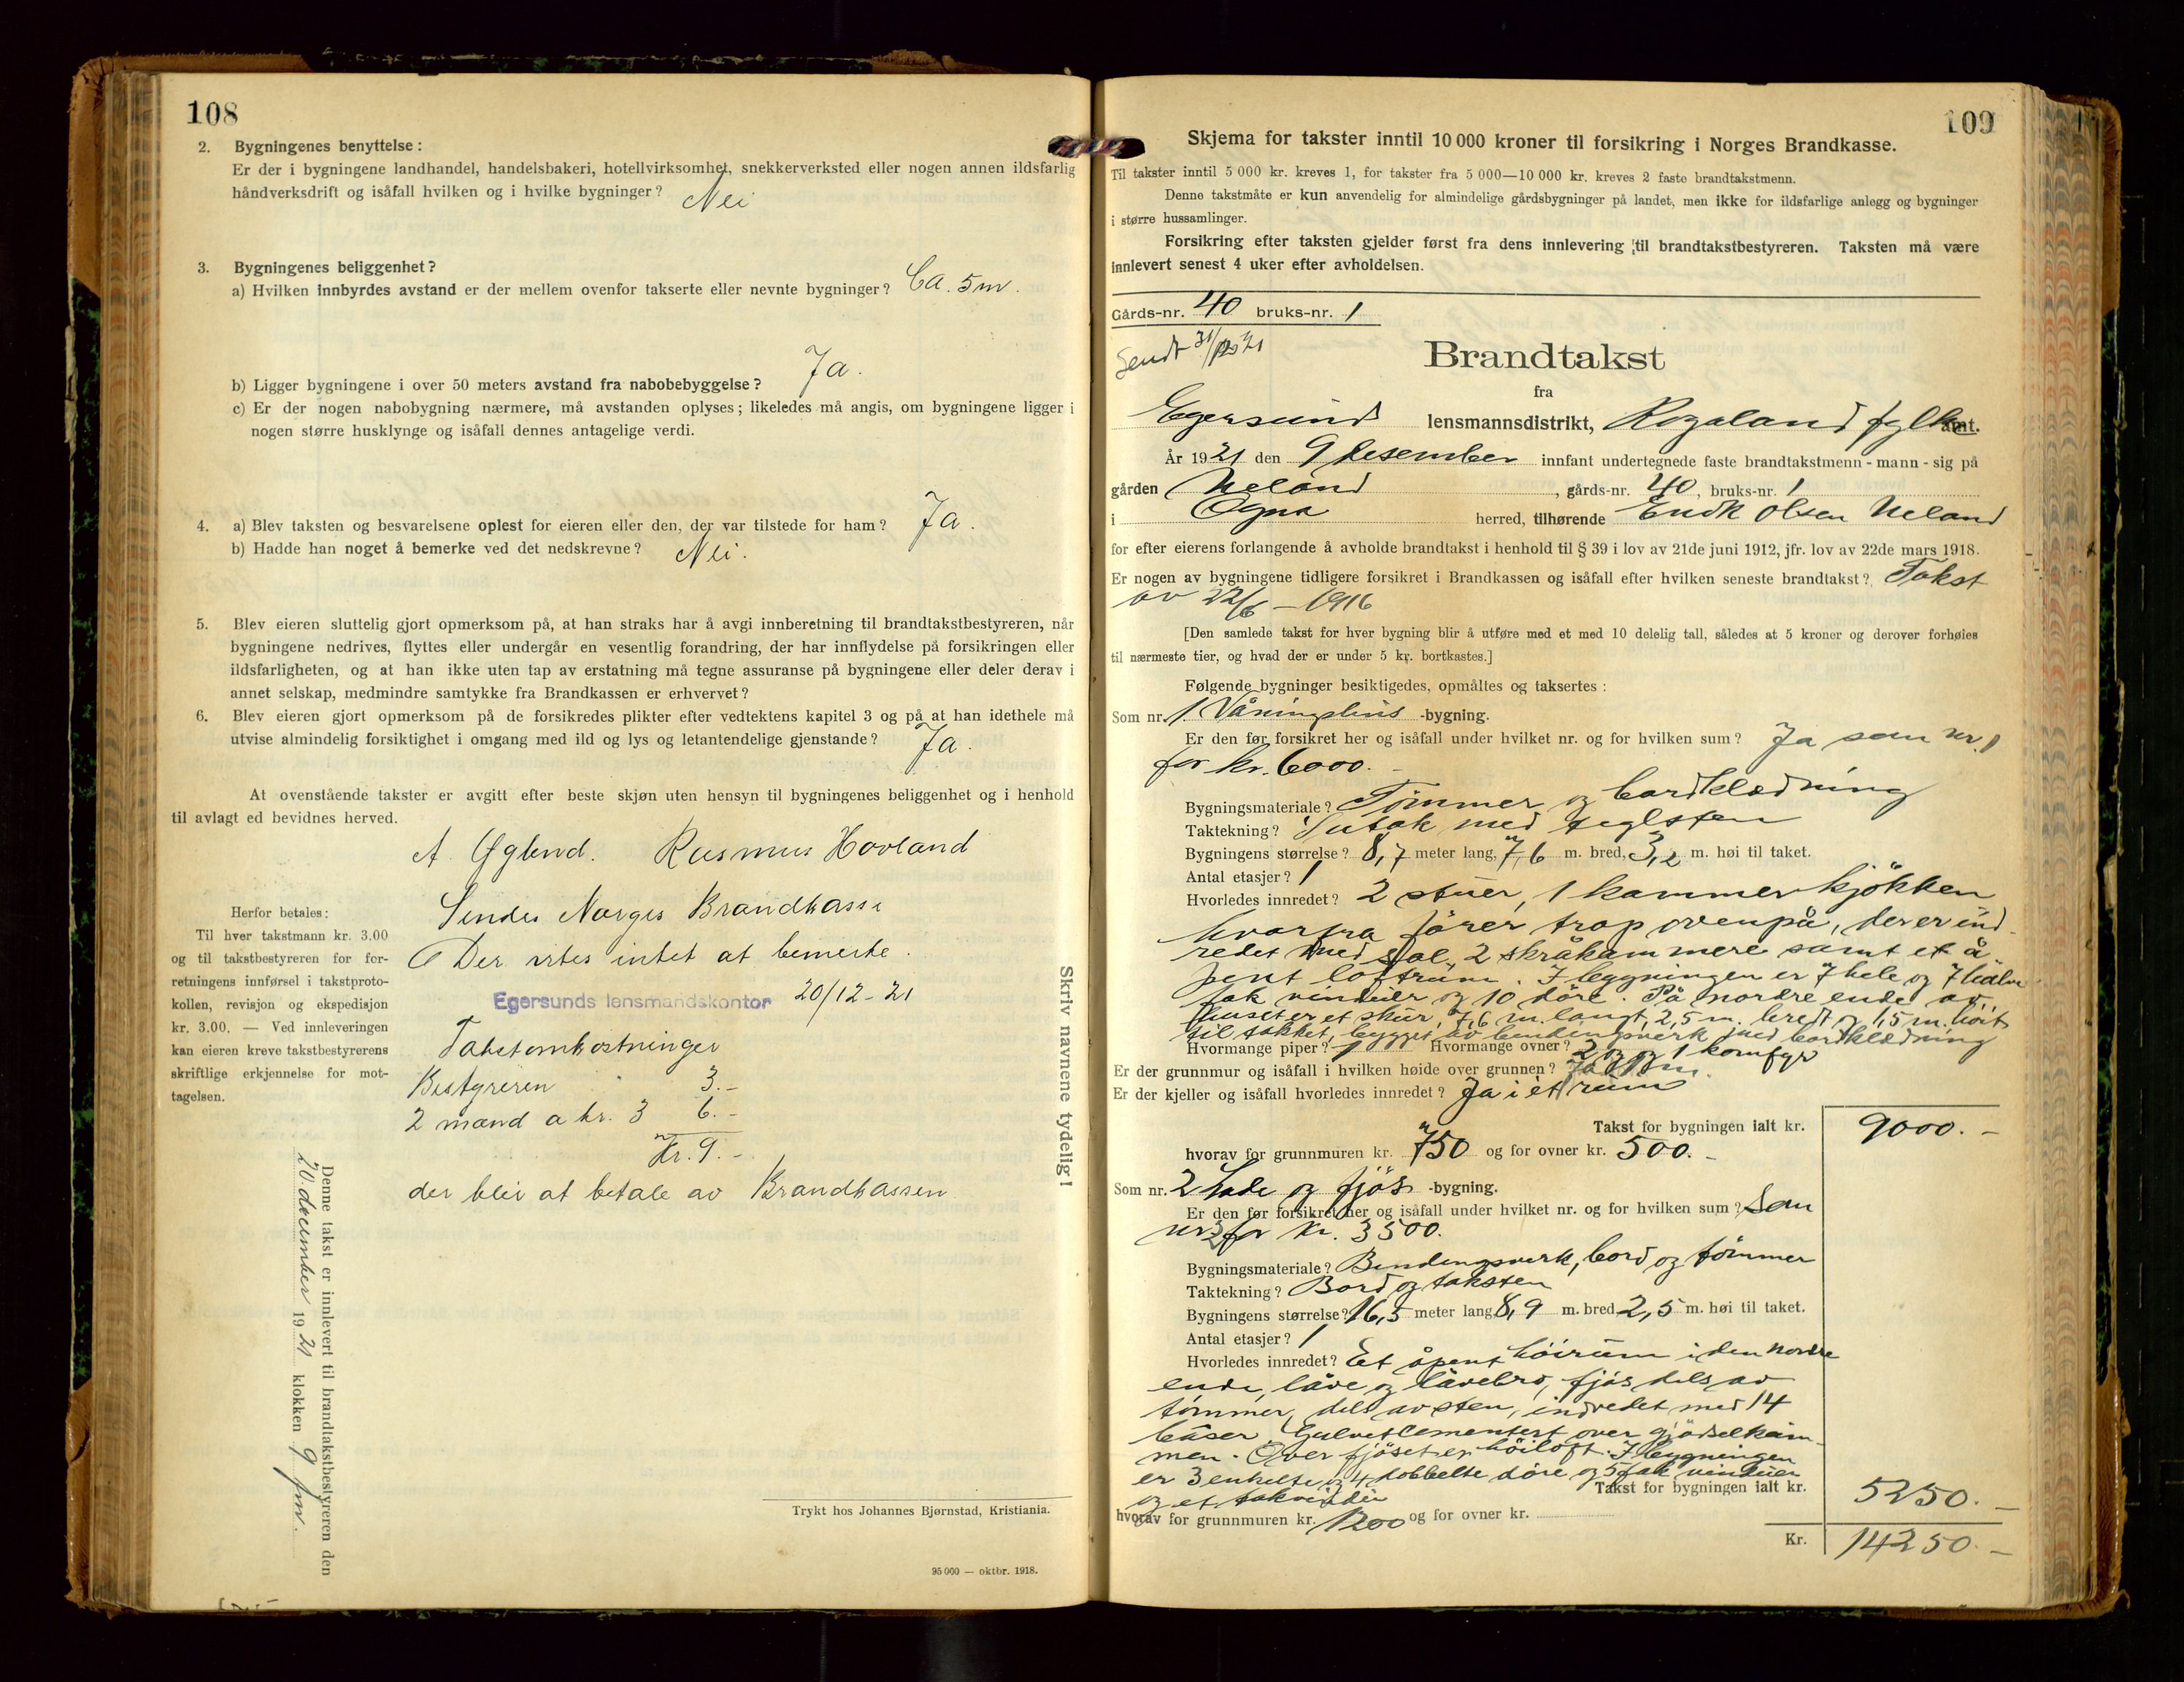 108
2. Bygningenes benyttelse:
Er der i bygningene landhandel, handelsbakeri, hotellvirksomhet, snekkerverksted eller nogen annen ildsfarlig
håndverksdrift og isåfall hvilken og i hvilke bygninger? Nei
3. Bygningenes beliggenhet?
a) Hvilken innbyrdes avstand er der mellem ovenfor takserte eller nevnte bygninger? Ca. 5 m.
b) Ligger bygningene i over 50 meters avstand fra nabobebyggelse? Ja.
c) Er der nogen nabobygning nærmere, må avstanden oplyses; likeledes må angis, om bygningene ligger i
nogen større husklynge og isåfall dennes antagelige verdi.
4. a) Blev taksten og besvarelsene oplest for eieren eller den, der var tilstede for ham? Ja.
b) Hadde han noget å bemerke ved det nedskrevne? Nei.
5. Blev eieren sluttelig gjort opmerksom på, at han straks har å avgi innberetning til brandtakstbestyreren, når
bygningene nedrives, flyttes eller undergår en vesentlig forandring, der har innflydelse på forsikringen eller
ildsfarligheten, og at han ikke uten tap av erstatning må tegne assuranse på bygningene eller deler derav i
annet selskap, medmindre samtykke fra Brandkassen er erhvervet?
6. Blev eieren gjort opmerksom på de forsikredes plikter efter vedtektens kapitel 3 og på at han idethele må
utvise almindelig forsiktighet i omgang med ild og lys og letantendelige gjenstande? Ja.
At ovenstående takster er avgitt efter beste skjøn uten hensyn til bygningenes beliggenhet og i henhold
til avlagt ed bevidnes herved.
A. Rasmus Hovland
Herfor betales:
Til hver takstmann kr. 3.00
og til takstbestyreren for for-
retningens innførsel i takstproto-
kollen, revisjon og ekspedisjon
kr. 3.00. — Ved innleveringen
kan eieren kreve takstbestyrerens
skriftlige erkjennelse for mot-
tagelsen.
Sendes Norges Brandkasse
Der vites intet at bemerke.
Egersunds lensmandskontor 20/12-21
Takstomkostninger
Bestyreren 3.-
2 mænd a kr. 3 6.-
Kr. 9.-
der blir at betale av Brandkassen
Denne takst er innlevert til brandtakstbestyreren den
20. december 1921 klokken 9 fm.
Skriv navnene tydelig!
Trykt hos Johannes Bjørnstad, Kristiania.
95 000 — oktbr. 1918.
109
Skjema for takster inntil 10 000 kroner til forsikring i Norges Brandkasse.
Til takster inntil 5 000 kr. kreves 1, for takster fra 5 000—10 000 kr. kreves 2 faste brandtakstmenn.
Denne takstmåte er kun anvendelig for almindelige gårdsbygninger på landet, men ikke for ildsfarlige anlegg og bygninger
i større hussamlinger.
Forsikring efter taksten gjelder først fra dens innlevering til brandtakstbestyreren. Taksten må være
innlevert senest 4 uker efter avholdelsen.
Gårds-nr. 40 bruks-nr. 1
Sendt
Brandtakst
fra
Egersund lensmannsdistrikt, Rogaland fylke amt.
År 1921 den 9 desember innfant undertegnede faste brandtakstmenn - mann - sig på
gården Ueland, gårds-nr. 40, bruks-nr. 1
i Ogna herred, tilhørende Endk Olsen Ueland
for efter eierens forlangende å avholde brandtakst i henhold til § 39 i lov av 21de juni 1912, jfr. lov av 22de mars 1918.
Er nogen av bygningene tidligere forsikret i Brandkassen og isåfall efter hvilken seneste brandtakst? Takst
av 22/6 – 1916
[Den samlede takst for hver bygning blir å utføre med et med 10 delelig tall, således at 5 kroner og derover forhøies
til nærmeste tier, og hvad der er under 5 kr. bortkastes.]
Følgende bygninger besiktigedes, opmåltes og taksertes:
Som nr. 1. Våningshus -bygning.
Er den før forsikret her og isåfall under hvilket nr. og for hvilken sum? Ja som nr. 1
for kr. 6000. –
Bygningsmateriale? Tømmer og bordklædning
Taktekning? Sutak med teglsten
Bygningens størrelse? 8,7 meter lang, 7,6 m. bred, 3,2 m. høi til taket.
Antal etasjer? 1
Hvorledes innredet? 2 stuer, 1 kammer kjøkken
hvorfra fører trap ovenpå, der er ind-
redet med sal, 2 skråkammere samt et å-
pent loftrum. I bygningen er 7 hele og 7 halve
fak vinduer og 10 døre. På nordre ende av
huset er et skur, 7,6 m. langt, 2,5 m. bredt og 1,5 m. høit
til takket, bygget av bendingsverk med bordklædning
Hvormange piper? 1 Hvormange ovner? 2 og 1 komfyr
Er der grunnmur og isåfall i hvilken høide over grunnen? Ja
Er der kjeller og isåfall hvorledes innredet? Ja i et rum
Takst for bygningen ialt kr. 9000. –
hvorav for grunnmuren kr. 750 og for ovner kr. 500. –
Som nr. 2 Lade og fjøs -bygning.
Er den før forsikret her og isåfall under hvilket nr. og for hvilken sum? Som
nr 2 for kr. 3500.
Bygningsmateriale? Bendingsverk, bord og tømmer
Taktekning? Bord og taksten
Bygningens størrelse? 16,5 meter lang 8,9 m. bred 2,5 m. høi til taket.
Antal etasjer? 1
Hvorledes innredet? Et åpent høirum i den nordre
ende, låve og låvebro, fjøs dels av
tømmer, dels av sten, indredet med 14
båser. Gulvet cementert over gjødselkam-
men. Over fjøset er høiloft. I bygningen
er 3 enkelte og 4 dobbelte døre og 5 fak vinduer
og et takvindu
Takst for bygningen ialt kr. 5250. –
hvorav for grunnmuren kr. 1200 og for ovner kr.
Kr. 14250. –